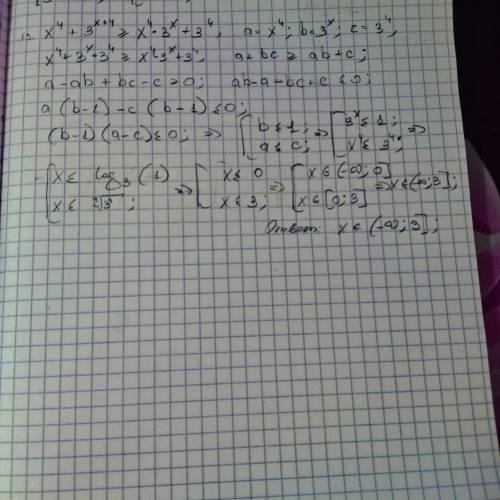 x⁴ + 3ˣ⁺⁴ ≥ x⁴·3ˣ + 3⁴; a = x⁴; b = 3ˣ; c = 3⁴;
x⁴ + 3ˣ·3⁴ ≥ x⁴·3ˣ + 3⁴; a + bc ≥ ab + c;
a - ab + bc - c ≥ 0; ab - a - bc + c ≤ 0;
a (b-1) - c (b-1) ≤ 0;
(b-1)(a-c) ≤ 0; ⇒ [ b ≤ 1; a ≤ c; ⇒ [ 3ˣ ≤ 1; x⁴ ≤ 3⁴; ⇒
[ x ≤ log₃(1) x ≤ ⁴√3⁴; ⇒ [ x ≤ 0 x ≤ 3; ⇒ [ x ∈ (-∞; 0] x ∈ [0; 3] ⇒ x ∈ (-∞; 3];
Ответ: x ∈ (-∞; 3];